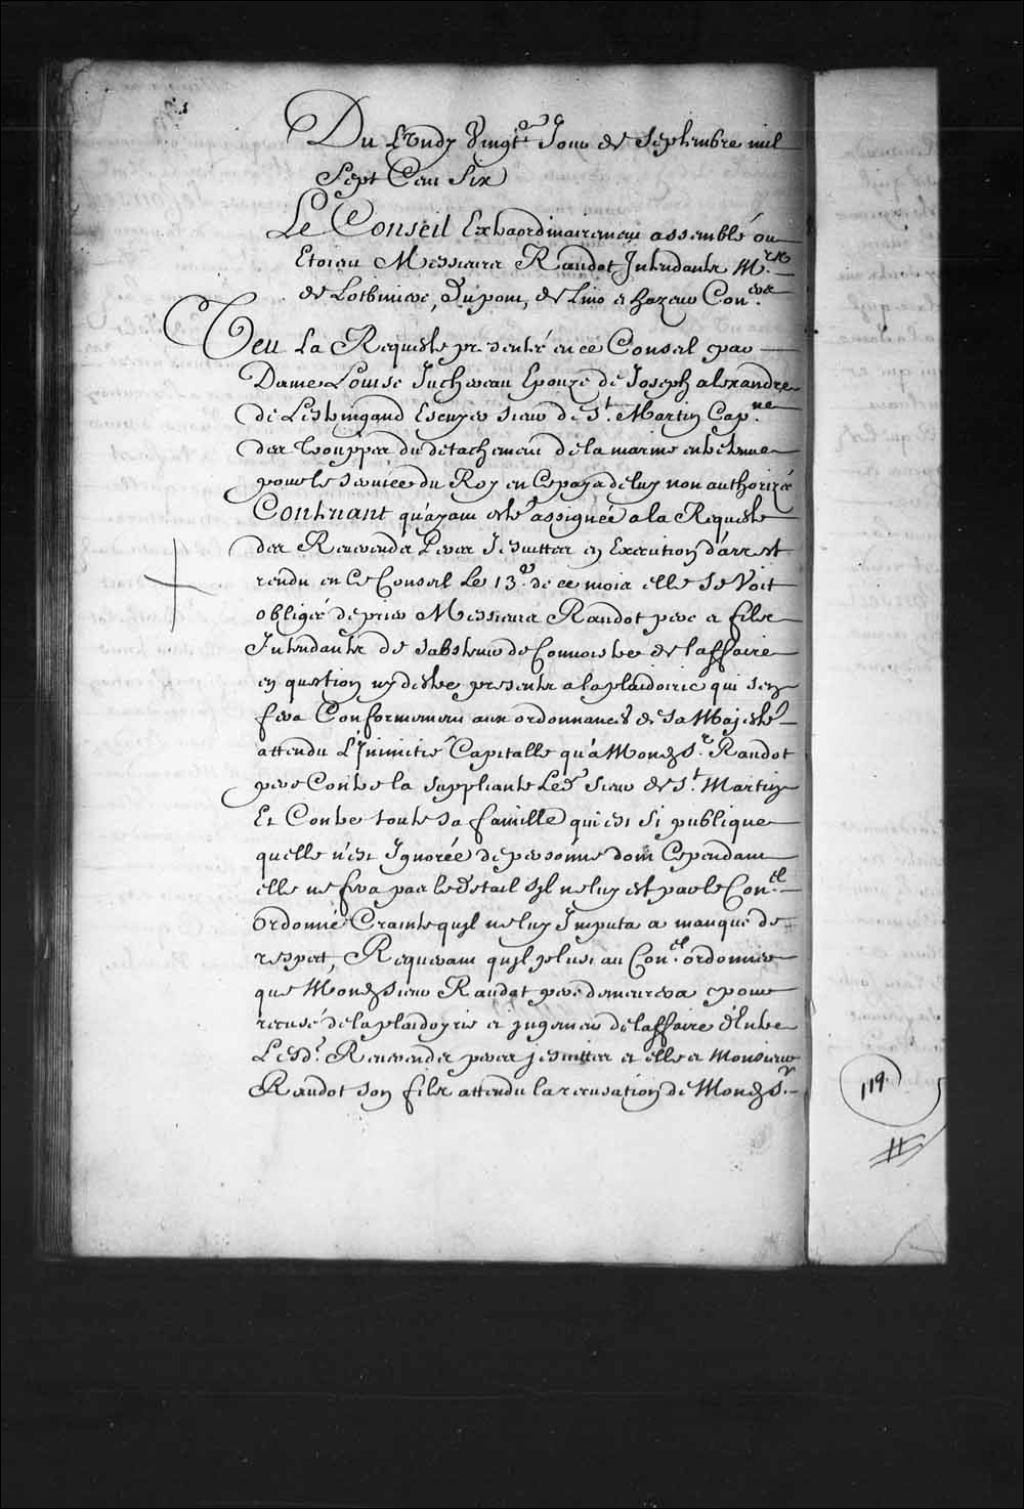 Du Lundy Vingt.e Jour de Septembre mil
Sept Cens Six
Le Conseil Extraordinairement assemblé ou
Etoient Messieurs Raudot Intendants M.rs
de Lotbiniere, Dupont, de Lino et hazeur Con.ers
Veu La Requeste presentée en ce Conseil par
Dame Louise Juchereau Epouze de Joseph alexandre
de Lestringand Escuyer Sieur de S.t Martin Cap.ne
des trouppes du detachement de la marine entretenue
pour le service du Roy en ce pays de luy non authorizée
Contenant qu'ayant esté assignée a la Requeste
des Reverends Peres Jesuittes en Execution d'arrest
rendu en ce Conseil Le 13.e de ce mois elle se Voit
obligée de prier Messieurs Raudot pere et fils
Intendants de s'abstenir de Connoistre de l'affaire
en question ny d'estre presents a la plaidoirie qui s'en
fera Conformement aux ordonnances de sa Majesté
attendu L'Jnimitié Capitalle qu'a Mond. S.r Raudot
pere Contre la suppliante Led. Sieur de S.t Martin
Et Contre toute sa famille qui est si publique
quelle n'est Ignorée de personne dont Cependant
elle ne fera pas le détail s'jl ne luy est par le Con.el
Ordonné Crainte qu'jl ne luy Imputa a manque de
respect, Requerant qu'jl plust au Con.el ordonner
que Mond. Sieur Raudot pere demeurera pour
recusé de la plaidoyrie et jugement de l'affaire d'Entre
Lesd. Reverends peres jesuittes et elle et Monsieur
Raudot son fils attendu la recusation de Mond. S.r
119.